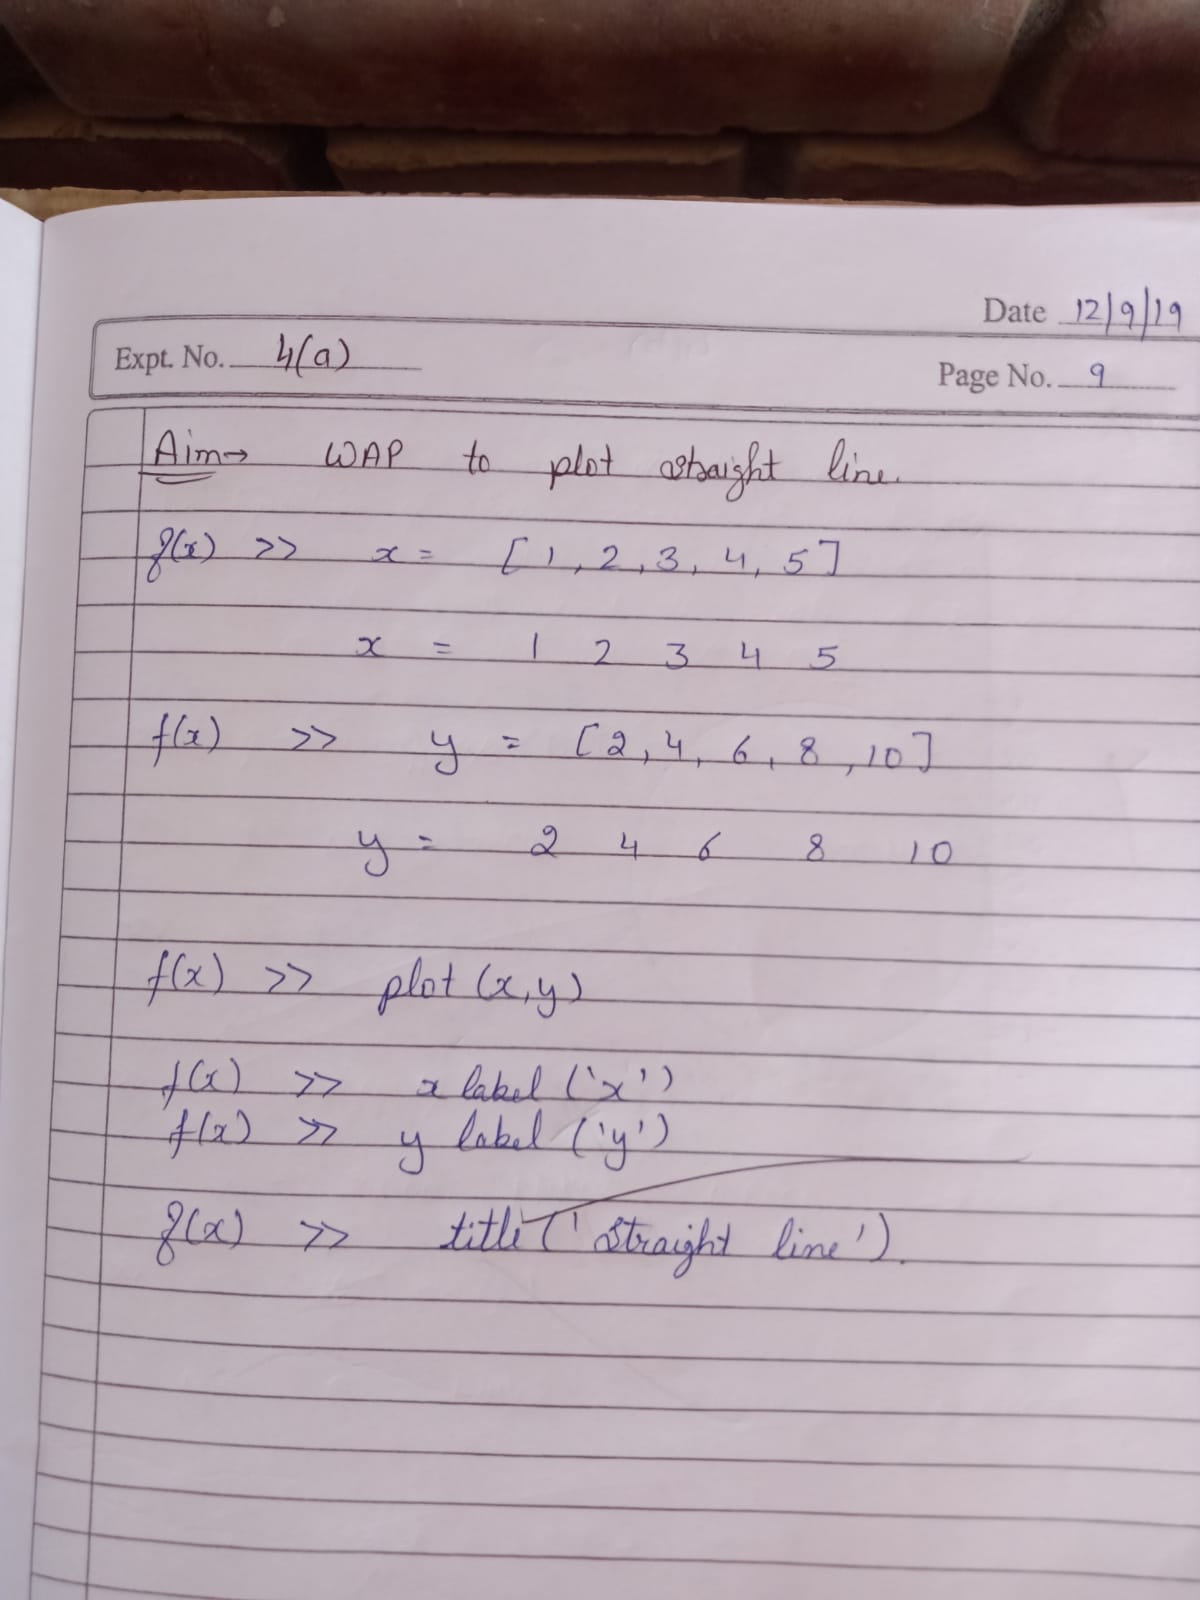 Date 12/9/19
Expt. No. 4(a)
Page No. 9
Aim→ WAP to plot straight line.
f(x) >> x = [1, 2, 3, 4, 5]
x = 1 2 3 4 5
f(x) >> y = [2, 4, 6, 8, 10]
y = 2 4 6 8 10
f(x) >> plot (x,y)
f(x) >> x label ('x')
f(x) >> y label ('y')
f(x) >> title ('straight line').